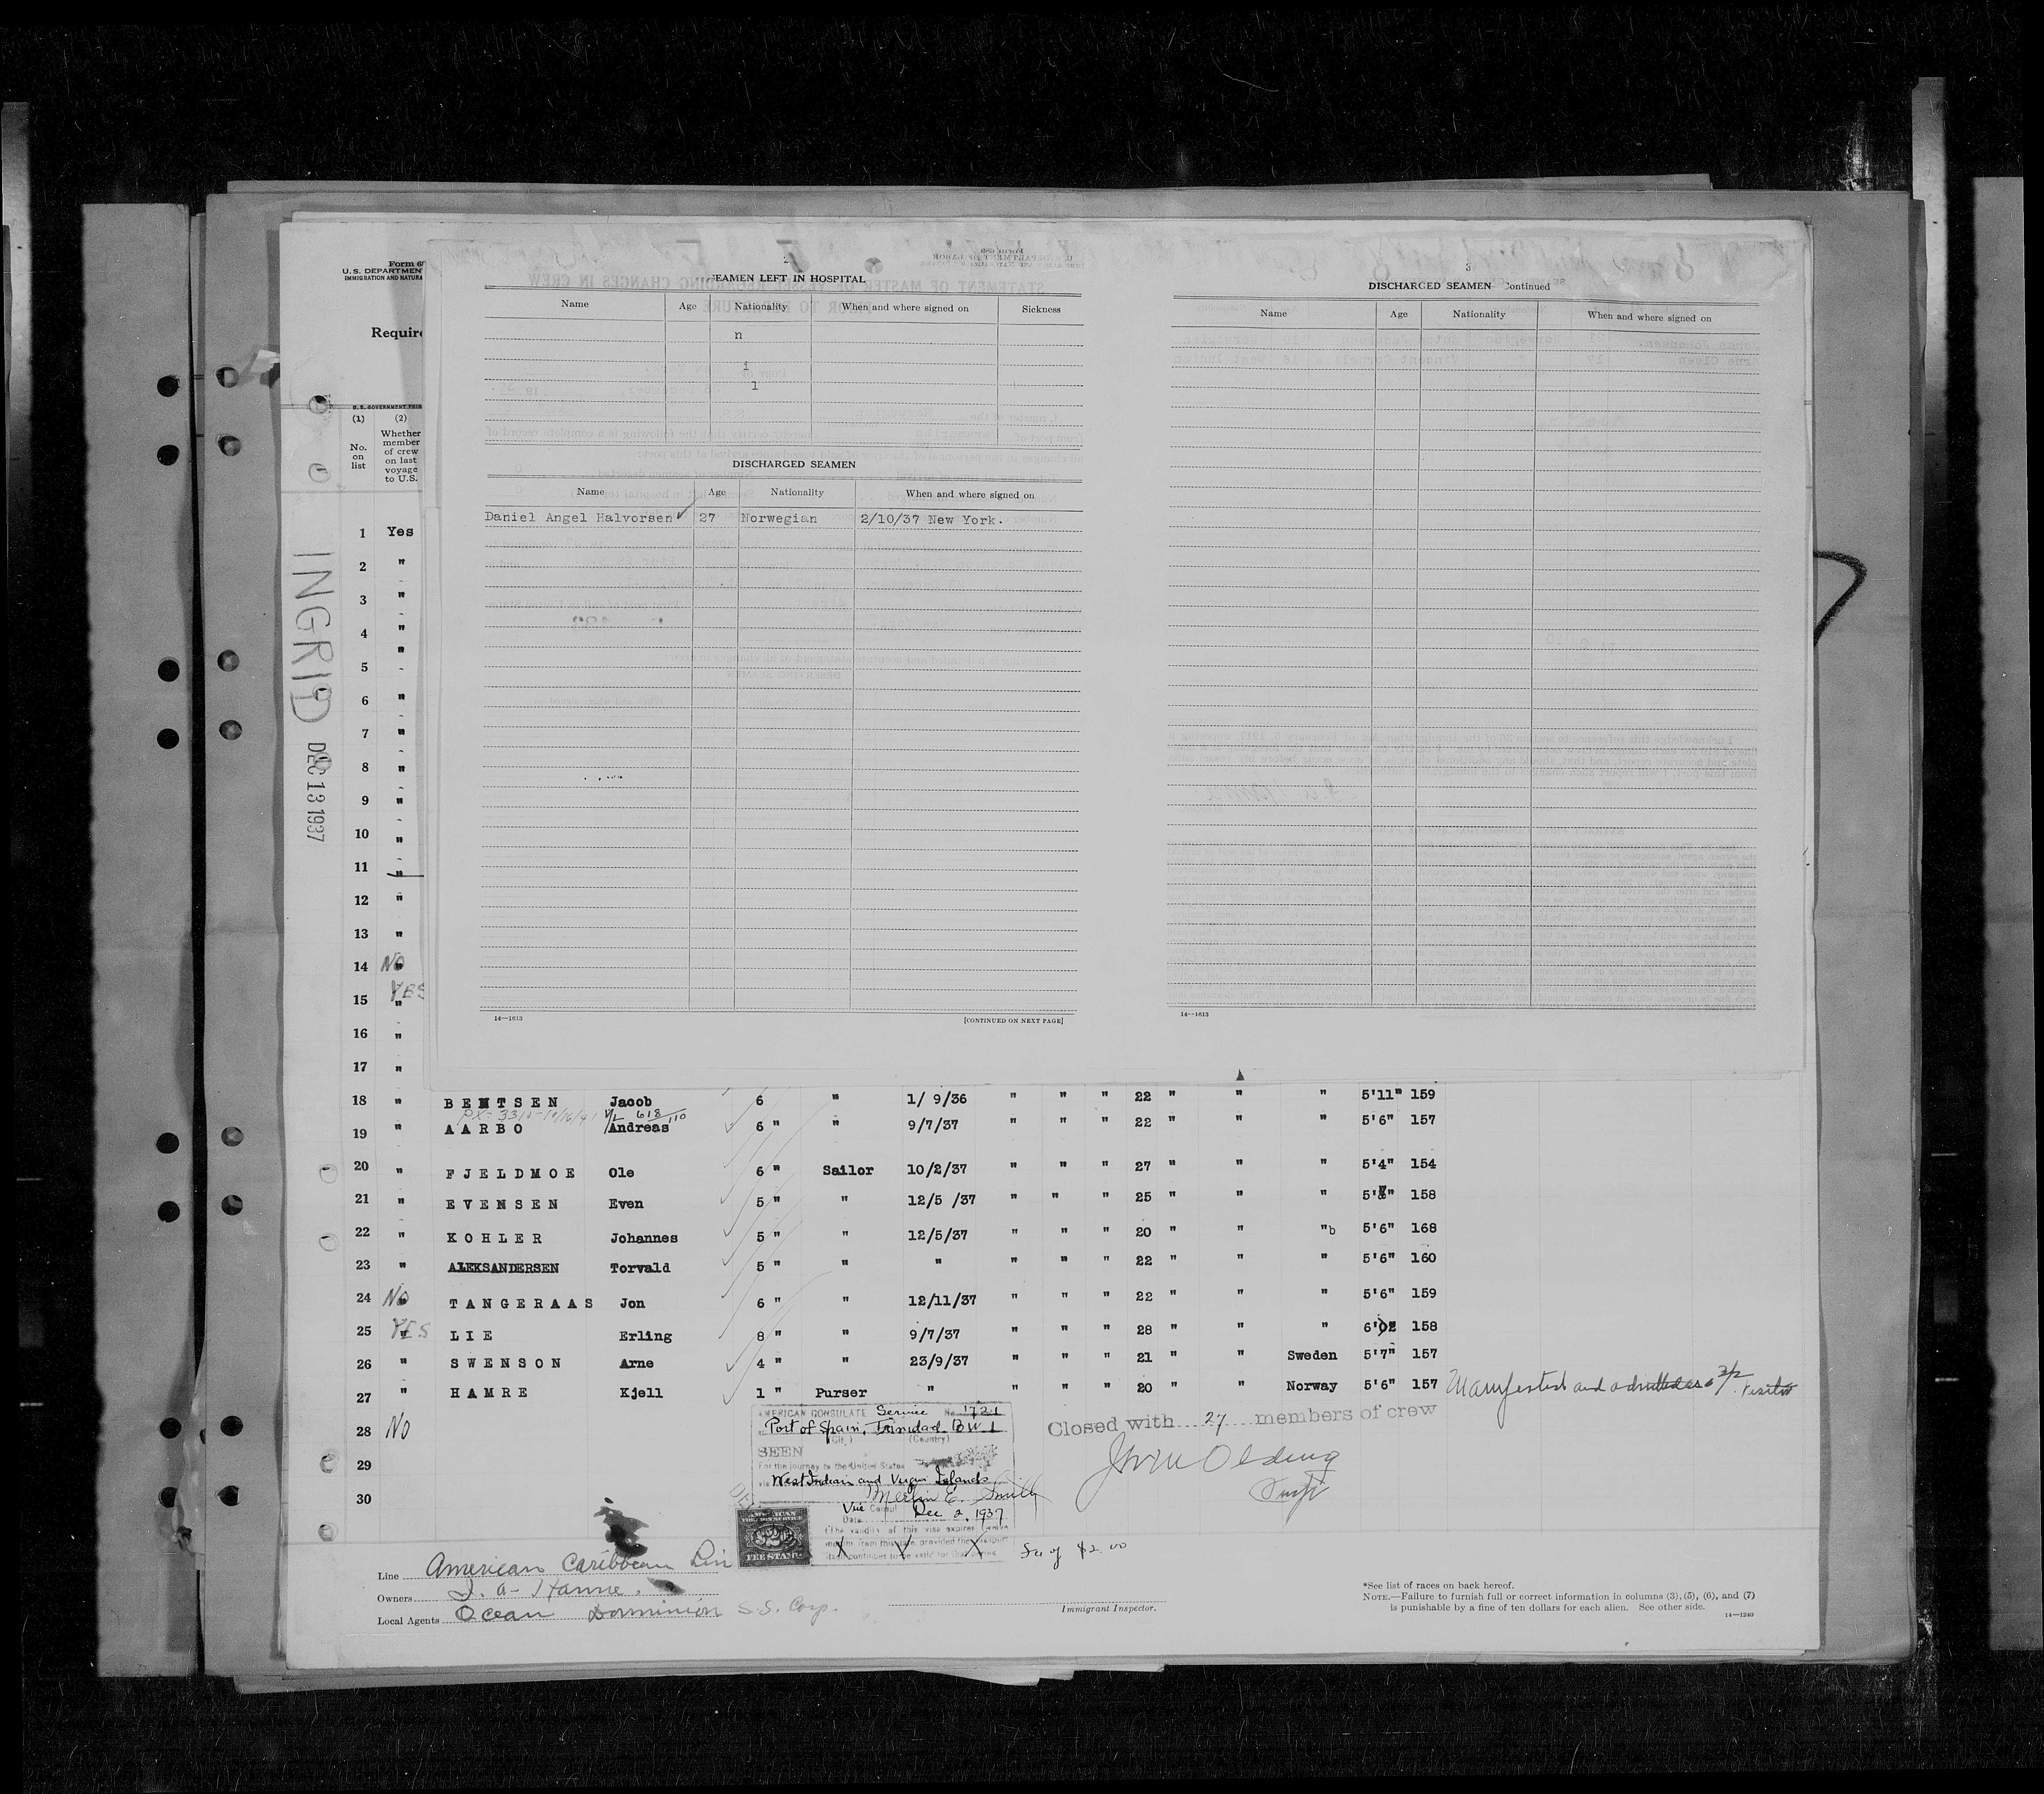 INGRID
DEC 13 1937
Form 68
U. S. DEPARTMENT
IMMIGRATION AND NATURA
Require
U. S. GOVERNMENT PRIN
(1) (2)
No. on list
Whether member of crew on last voyage to U.S.
1 Yes
2 "
3 "
4 "
5 "
6 "
7 "
8 "
9 "
10 "
11 "
12 "
13 "
14 NO
15 YES "
16 "
17 "
2
SEAMEN LEFT IN HOSPITAL
Name Age Nationality When and where signed on Sickness
n
i
l
DISCHARGED SEAMEN
Name Age Nationality When and where signed on
Daniel Angel Halvorsen 27 Norwegian 2/10/37 New York.
14—1613 [CONTINUED ON NEXT PAGE]
3
DISCHARGED SEAMEN Continued
Name Age Nationality When and where signed on
14—1613
18 " BENTSEN Jacob 6 " 1/ 9/36 " " " 22 " " " 5'11" 159
19 " AARBO Andreas 6 " " 9/7/37 " " " 22 " " " 5'6" 157
20 " FJELDMOE Ole 6 " Sailor 10/2/37 " " " 27 " " " 5'4" 154
21 " EVENSEN Even 5 " " 12/5 /37 " " " 25 " " " 158
22 " KOHLER Johannes 5 " " 12/5/37 " " " 20 " " "b 5'6" 168
23 " ALEKSANDERSEN Torvald 5 " " " " " " 22 " " " 5'6" 160
24 NO TANGERAAS Jon 6 " " 12/11/37 " " " 22 " " " 5'6" 159
25 YES LIE Erling 8 " " 9/7/37 " " " 28 " " " 158
26 " SWENSON Arne 4 " " 23/9/37 " " " 21 " " Sweden 5'7" 157
27 " HAMRE Kjell 1 " Purser " " " " 20 " " Norway 5'6" 157 Manifested and admitted as 3/2 Visitor
28 NO
29
30
AMERICAN CONSULATE Service No. 1721
Port of Spain, Trinidad B W I
(City) (Country)
SEEN
For the journey to the United States
via West Indian and Virgin Islands
Merlin E. Smith
Vice Consul
Date Dec 2, 1937
(The validity of this visa expires twelve
months from this date, provided the passport
continues to be valid for that period
AMERICAN
FOREIGN SERVICE
FEE STAMP
Closed with 27 members of crew
Line American Caribbean Lin
Owners I. A- Hamre.
Local Agents Ocean Dominion S.S. Corp.
Immigrant Inspector.
*See list of races on back hereof.
NOTE.—Failure to furnish full or correct information in columns (3), (5), (6), and (7)
is punishable by a fine of ten dollars for each alien. See other side.
14—1240